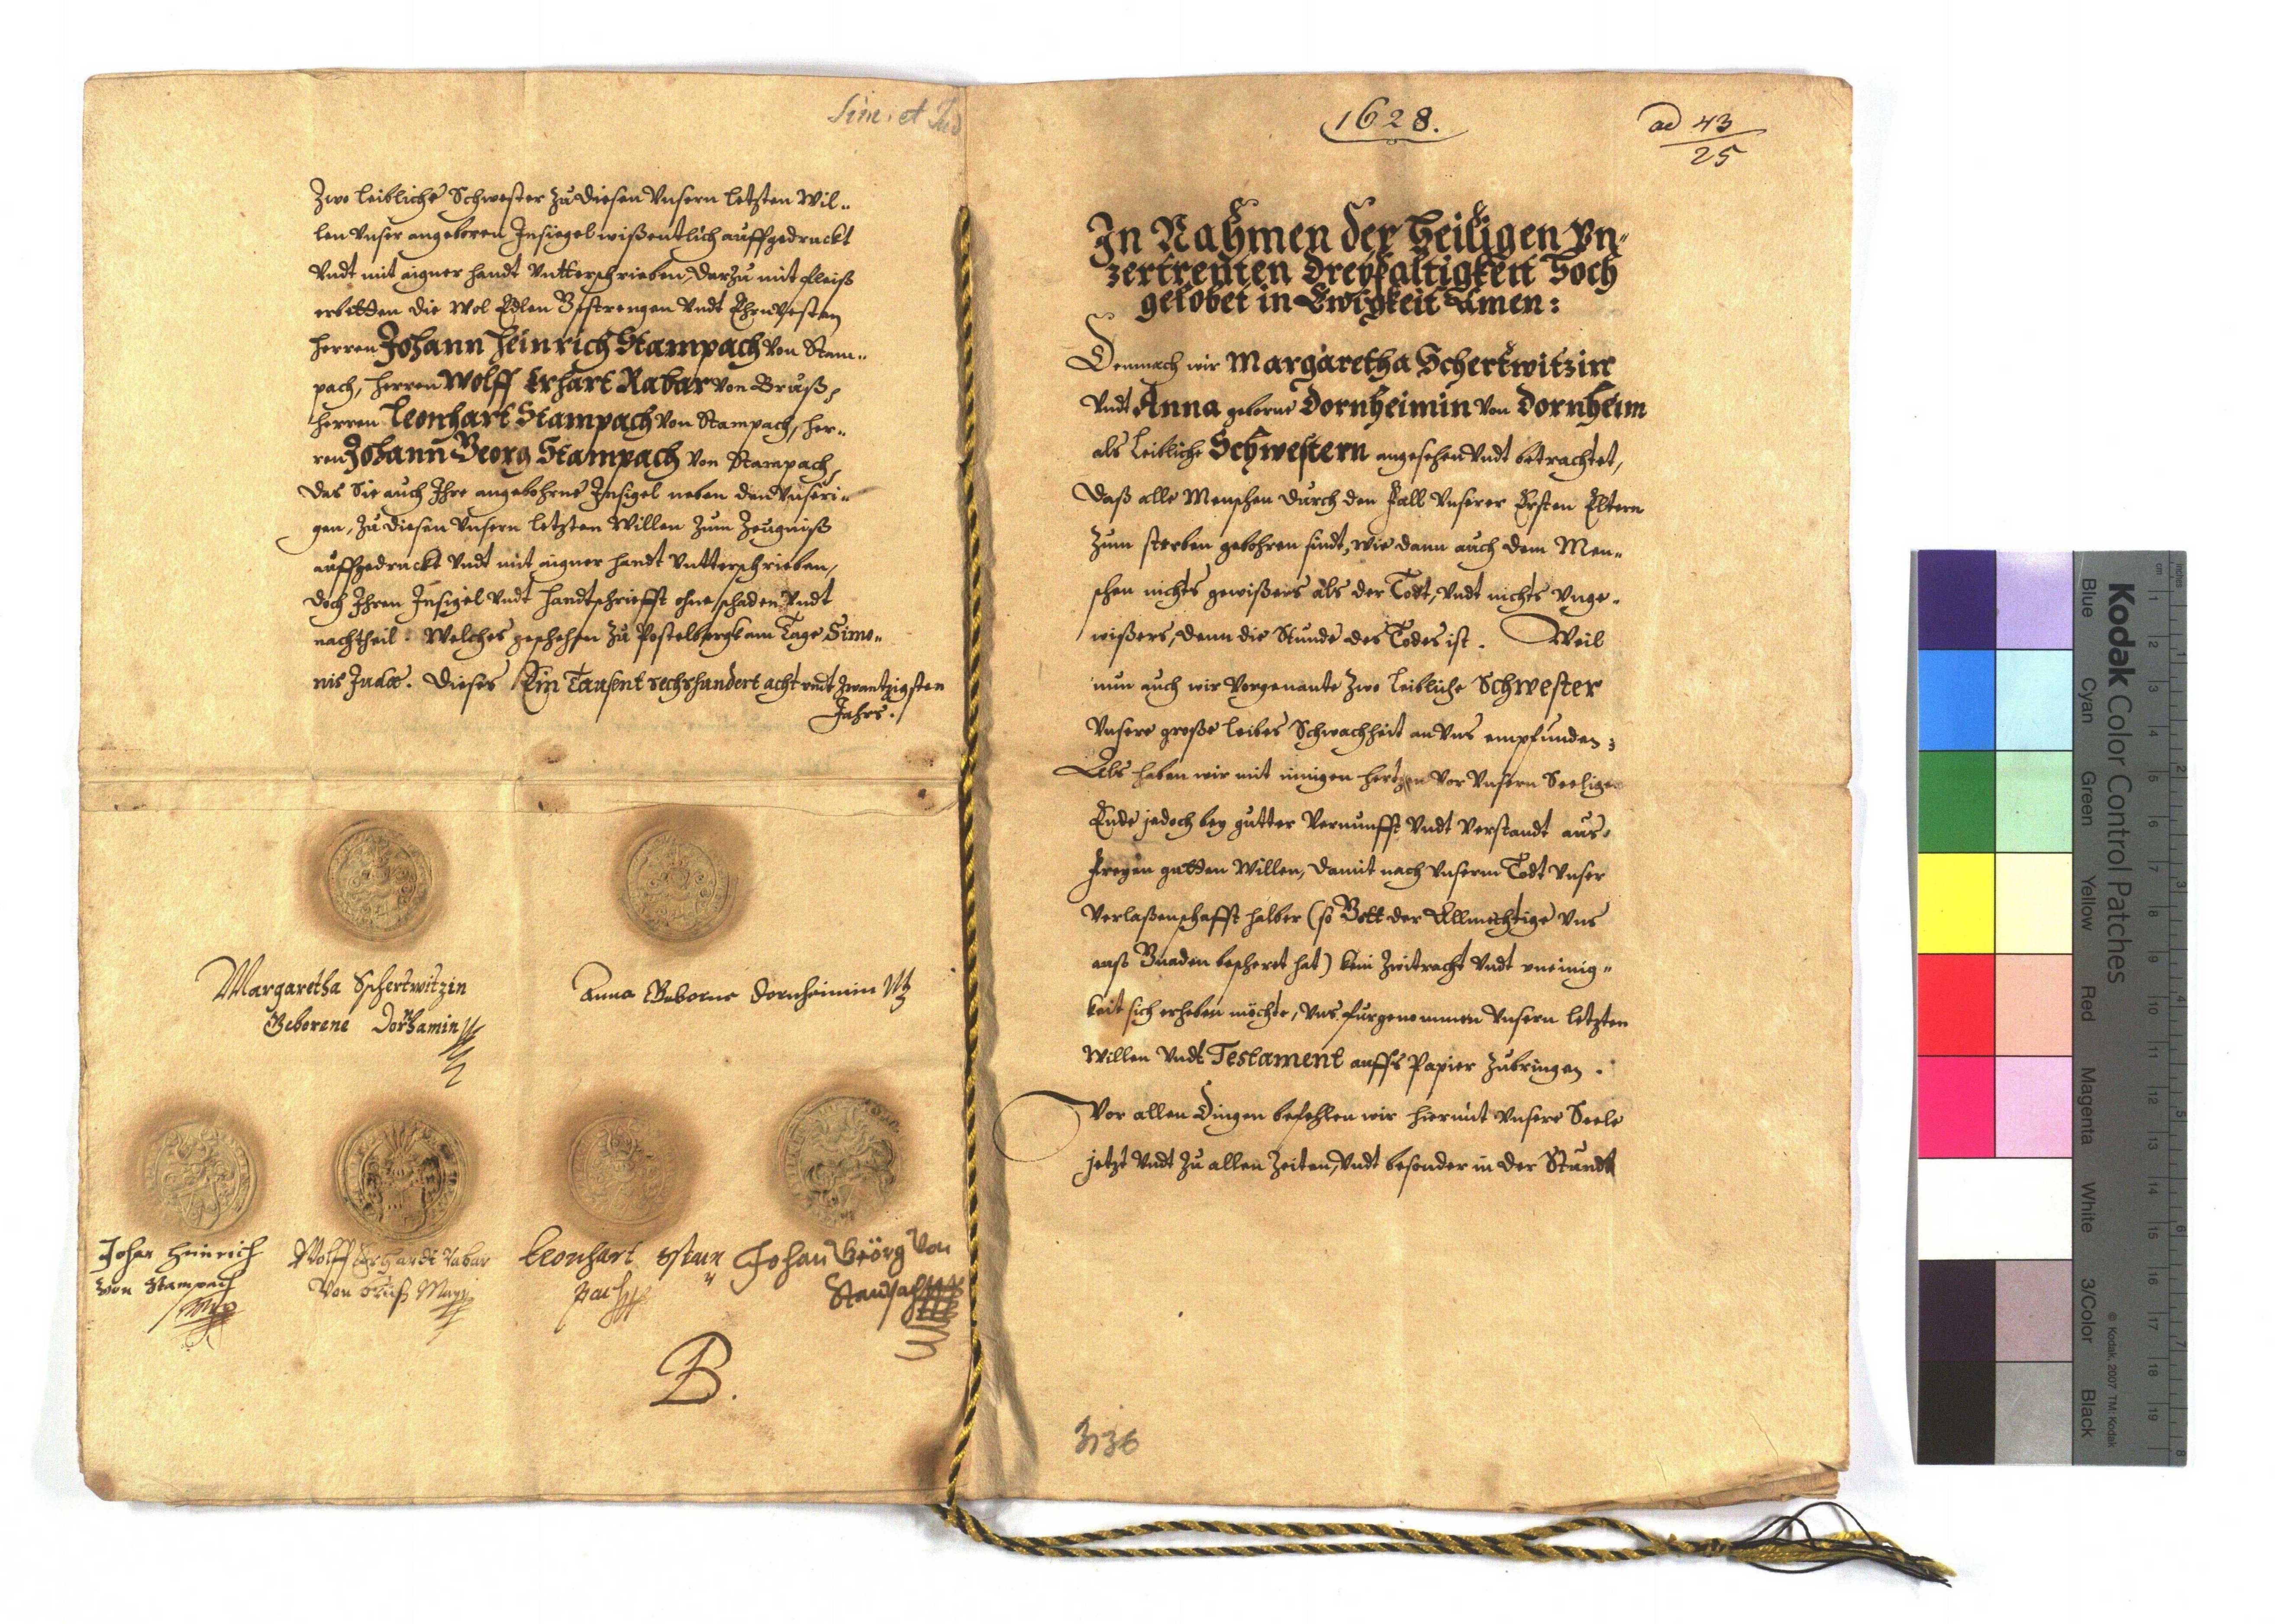 Sim. et Jud
Zwo leibliche Schwester zu diesen Unsern letzten Wil-
len Unser angeboren Insiegel wißentlich auffgedruckt
Undt mit aigner handt Untterschrieben, Darzu mit fleiß
erbetten die Wol Edlen Gestrengen Undt Ehrnvesten
Herren Johann Heinrich Stampach Von Stam-
pach, Herren Wolff Erhart Rabar Von Bruß,
Herren Leonhart Stampach Von Stampach, Her-
ren Johann Georg Stampach Von Stampach,
Das Sie auch Ihre angebohrne Insigel neben den Unseri-
gen, Zu diesen Unsern letzten Willen Zum Zeugniß
auffgedruckt Undt mit aigner handt Untterschrieben,
Doch Ihren Insigel Undt Handtschrifft ohne schaden Undt
nachtheil: Welches geschehen Zu Postelbergk am Tage Simo-
nis Judæ. Dieses Ein Tausent sechshundert acht undt Zwantzigsten
Jahrs.
Margaretha Schertwitzin
Geborene Dornhamin
Anna Geborne Dornheimin
Johan Heinrich
von Stampach
Wolff Erhardt Rabar
Von Bruß
Leonhart Stam
pach
Johan Geörg Von
Stampach
B.
1628.
ad 43
25
In Nahmen der Heiligen Vn-
zertrenten Dreyfaltigkeit Hoch
gelobet in Ewigkeit Amen:
Demnach wir Margaretha Schertwitzin
Undt Anna geborne Dornheimin Von Dornheim
als Leibliche Schwestern angesehen Undt betrachtet,
Daß alle Menschen durch den Fall Unserer Ersten Eltern
Zum sterben gebohren sindt, Wie dann auch dem Men-
schen nichts gewißers als der Todt, Undt nichts Unge-
wißers, denn die Stunde des Todes ist. Weil
nun auch wir Vorgenante Zwo leibliche Schwester
Unsere große leibes Schwachheit an Uns empfunden;
Als haben wir mit innigen hertzen Vor Unsern Seeligen
Ende jedoch bey gutter Vernunfft Undt Verstandt aus
Freyen gutten Willen, Damit nach Unserm Todt Unser
Verlaßenschafft halber (so Gott der Allmechtige Uns
auß Gnaden bescheret hat) kein Zwitracht Undt uneinig-
keit sich erheben möchte, Uns furgenommen Unsern letzten
Willen Undt Testament auffs Papier Zubringen.
Vor allen Dingen befehlen wir hiemit Unsere Seele
jetzt Undt Zu allen Zeiten, Undt besonder in der Stundt
3136
Kodak Color Control Patches
Blue Cyan Green Yellow Red Magenta White 3/Color Black
© Kodak, 2007 TM: Kodak
inches 1 2 3 4 5 6 7 8
cm 1 2 3 4 5 6 7 8 9 10 11 12 13 14 15 16 17 18 19